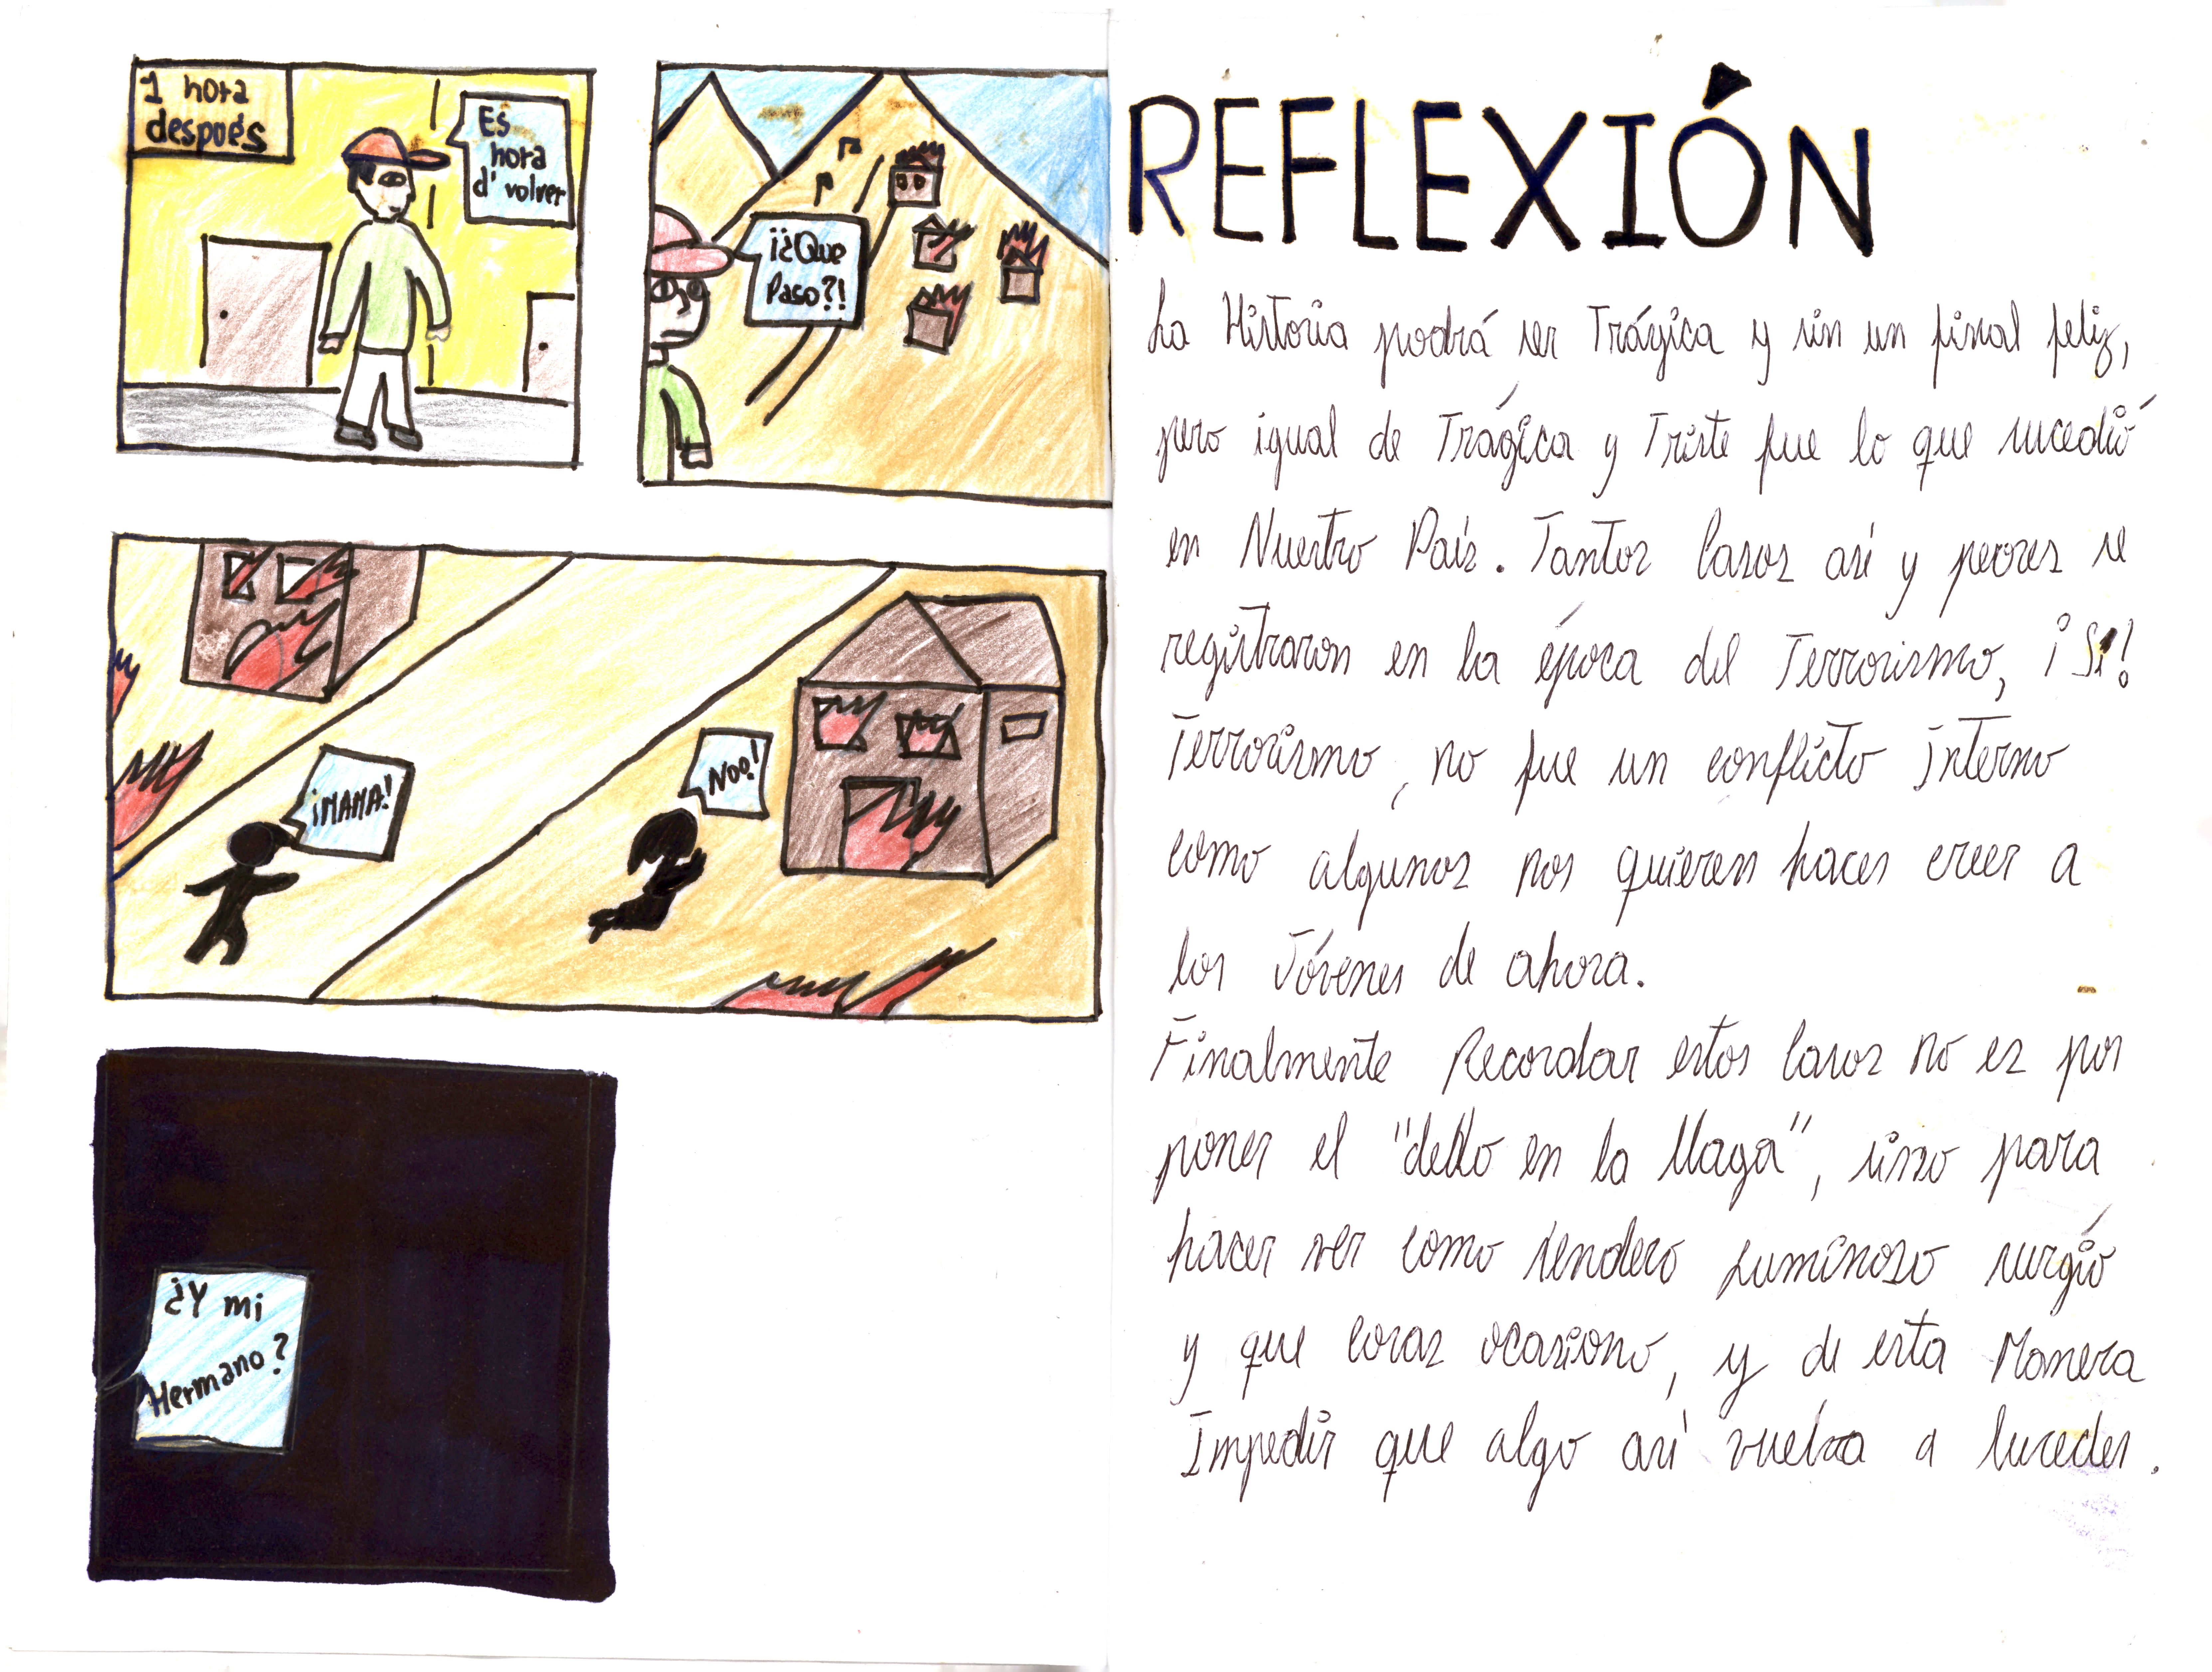 1 hora
después
Es
hora
d' volver
¡¿Que
Paso?!
¡MAMA!
NOO!
¿Y mi
Hermano?
REFLEXIÓN
La Historia podrá ser Trágica y sin un final feliz,
pero igual de Trágica y Triste fue lo que sucedió
en Nuestro País. Tantos Casos así y peores se
registraron en la época del Terrorismo, ¡Si!
Terrorismo, no fue un conflicto Interno
como algunos nos quieren hacer creer a
los Jóvenes de ahora.
Finalmente Recordar estos Casos no es por
poner el "dedo en la llaga", sino para
hacer ver como Sendero Luminoso surgió
y que cosas ocasiono, y de esta Manera
Impedir que algo así vuelva a Suceder.